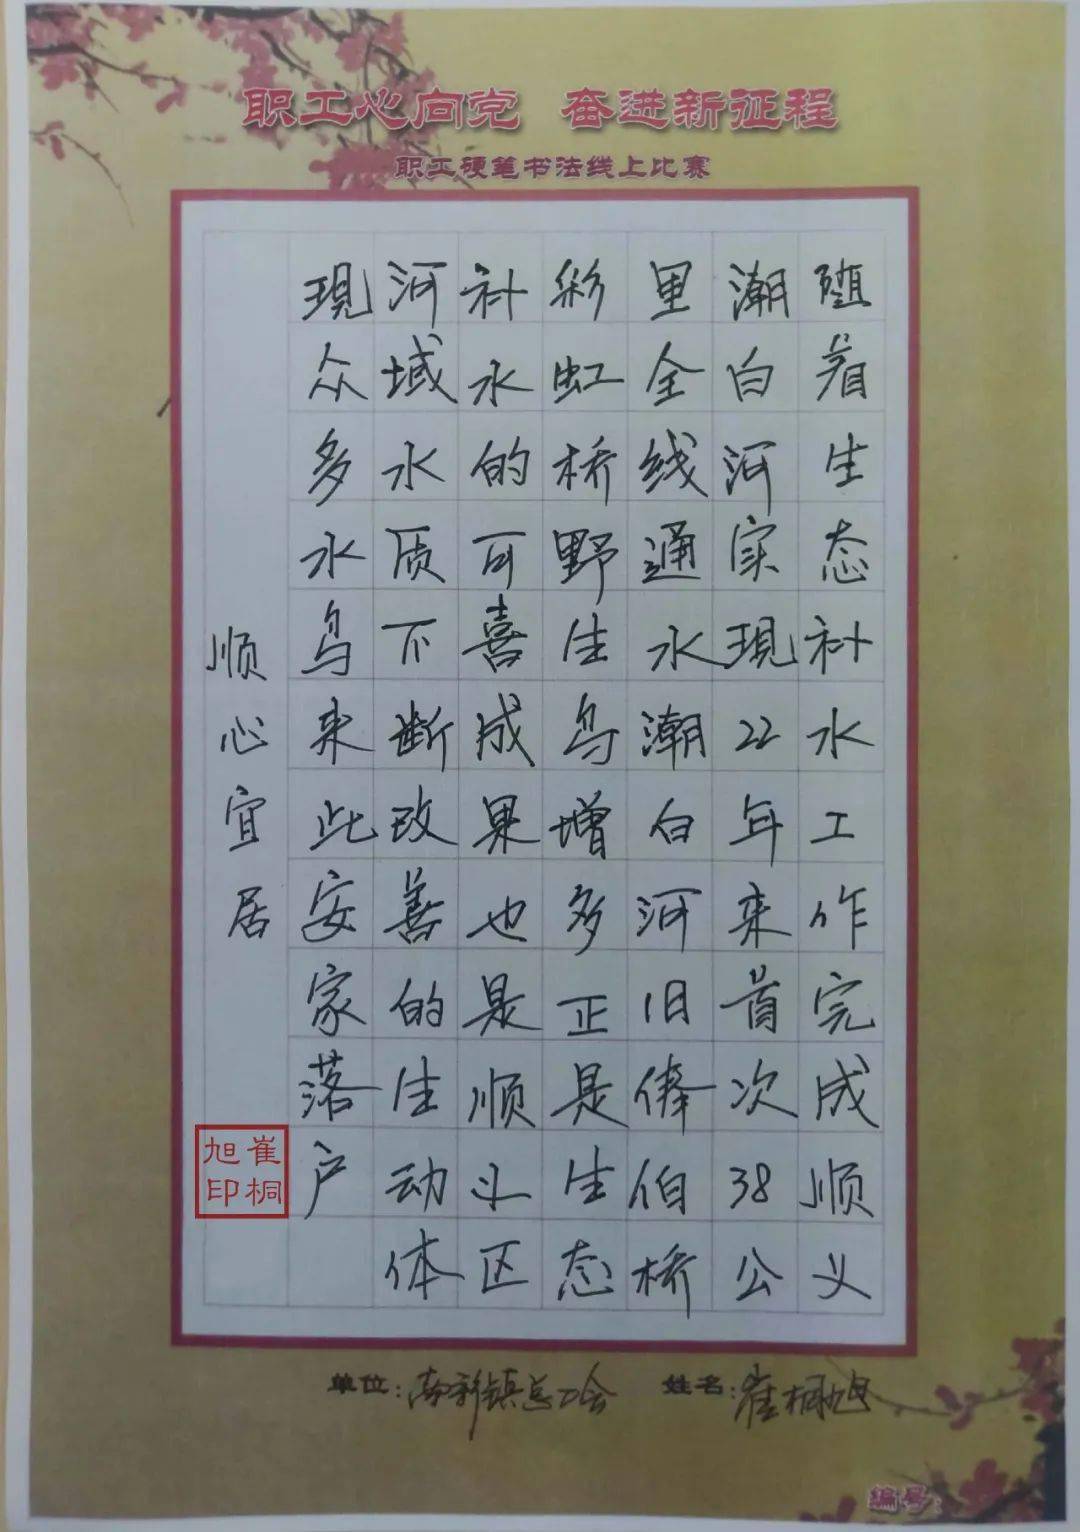 职工心向党 奋进新征程
职工硬笔书法线上比赛
随着生态补水工作完成顺义
潮白河实現22年来首次38公
里全线通水潮白河旧俸伯桥
彩虹桥野生鸟增多正是生态
补水的可喜成果也是顺义区
河域水质不断改善的生动体
現众多水鸟来此安家落户
顺心宜居
崔桐旭印
单位:南彩镇总工会 姓名:崔桐旭
编号: